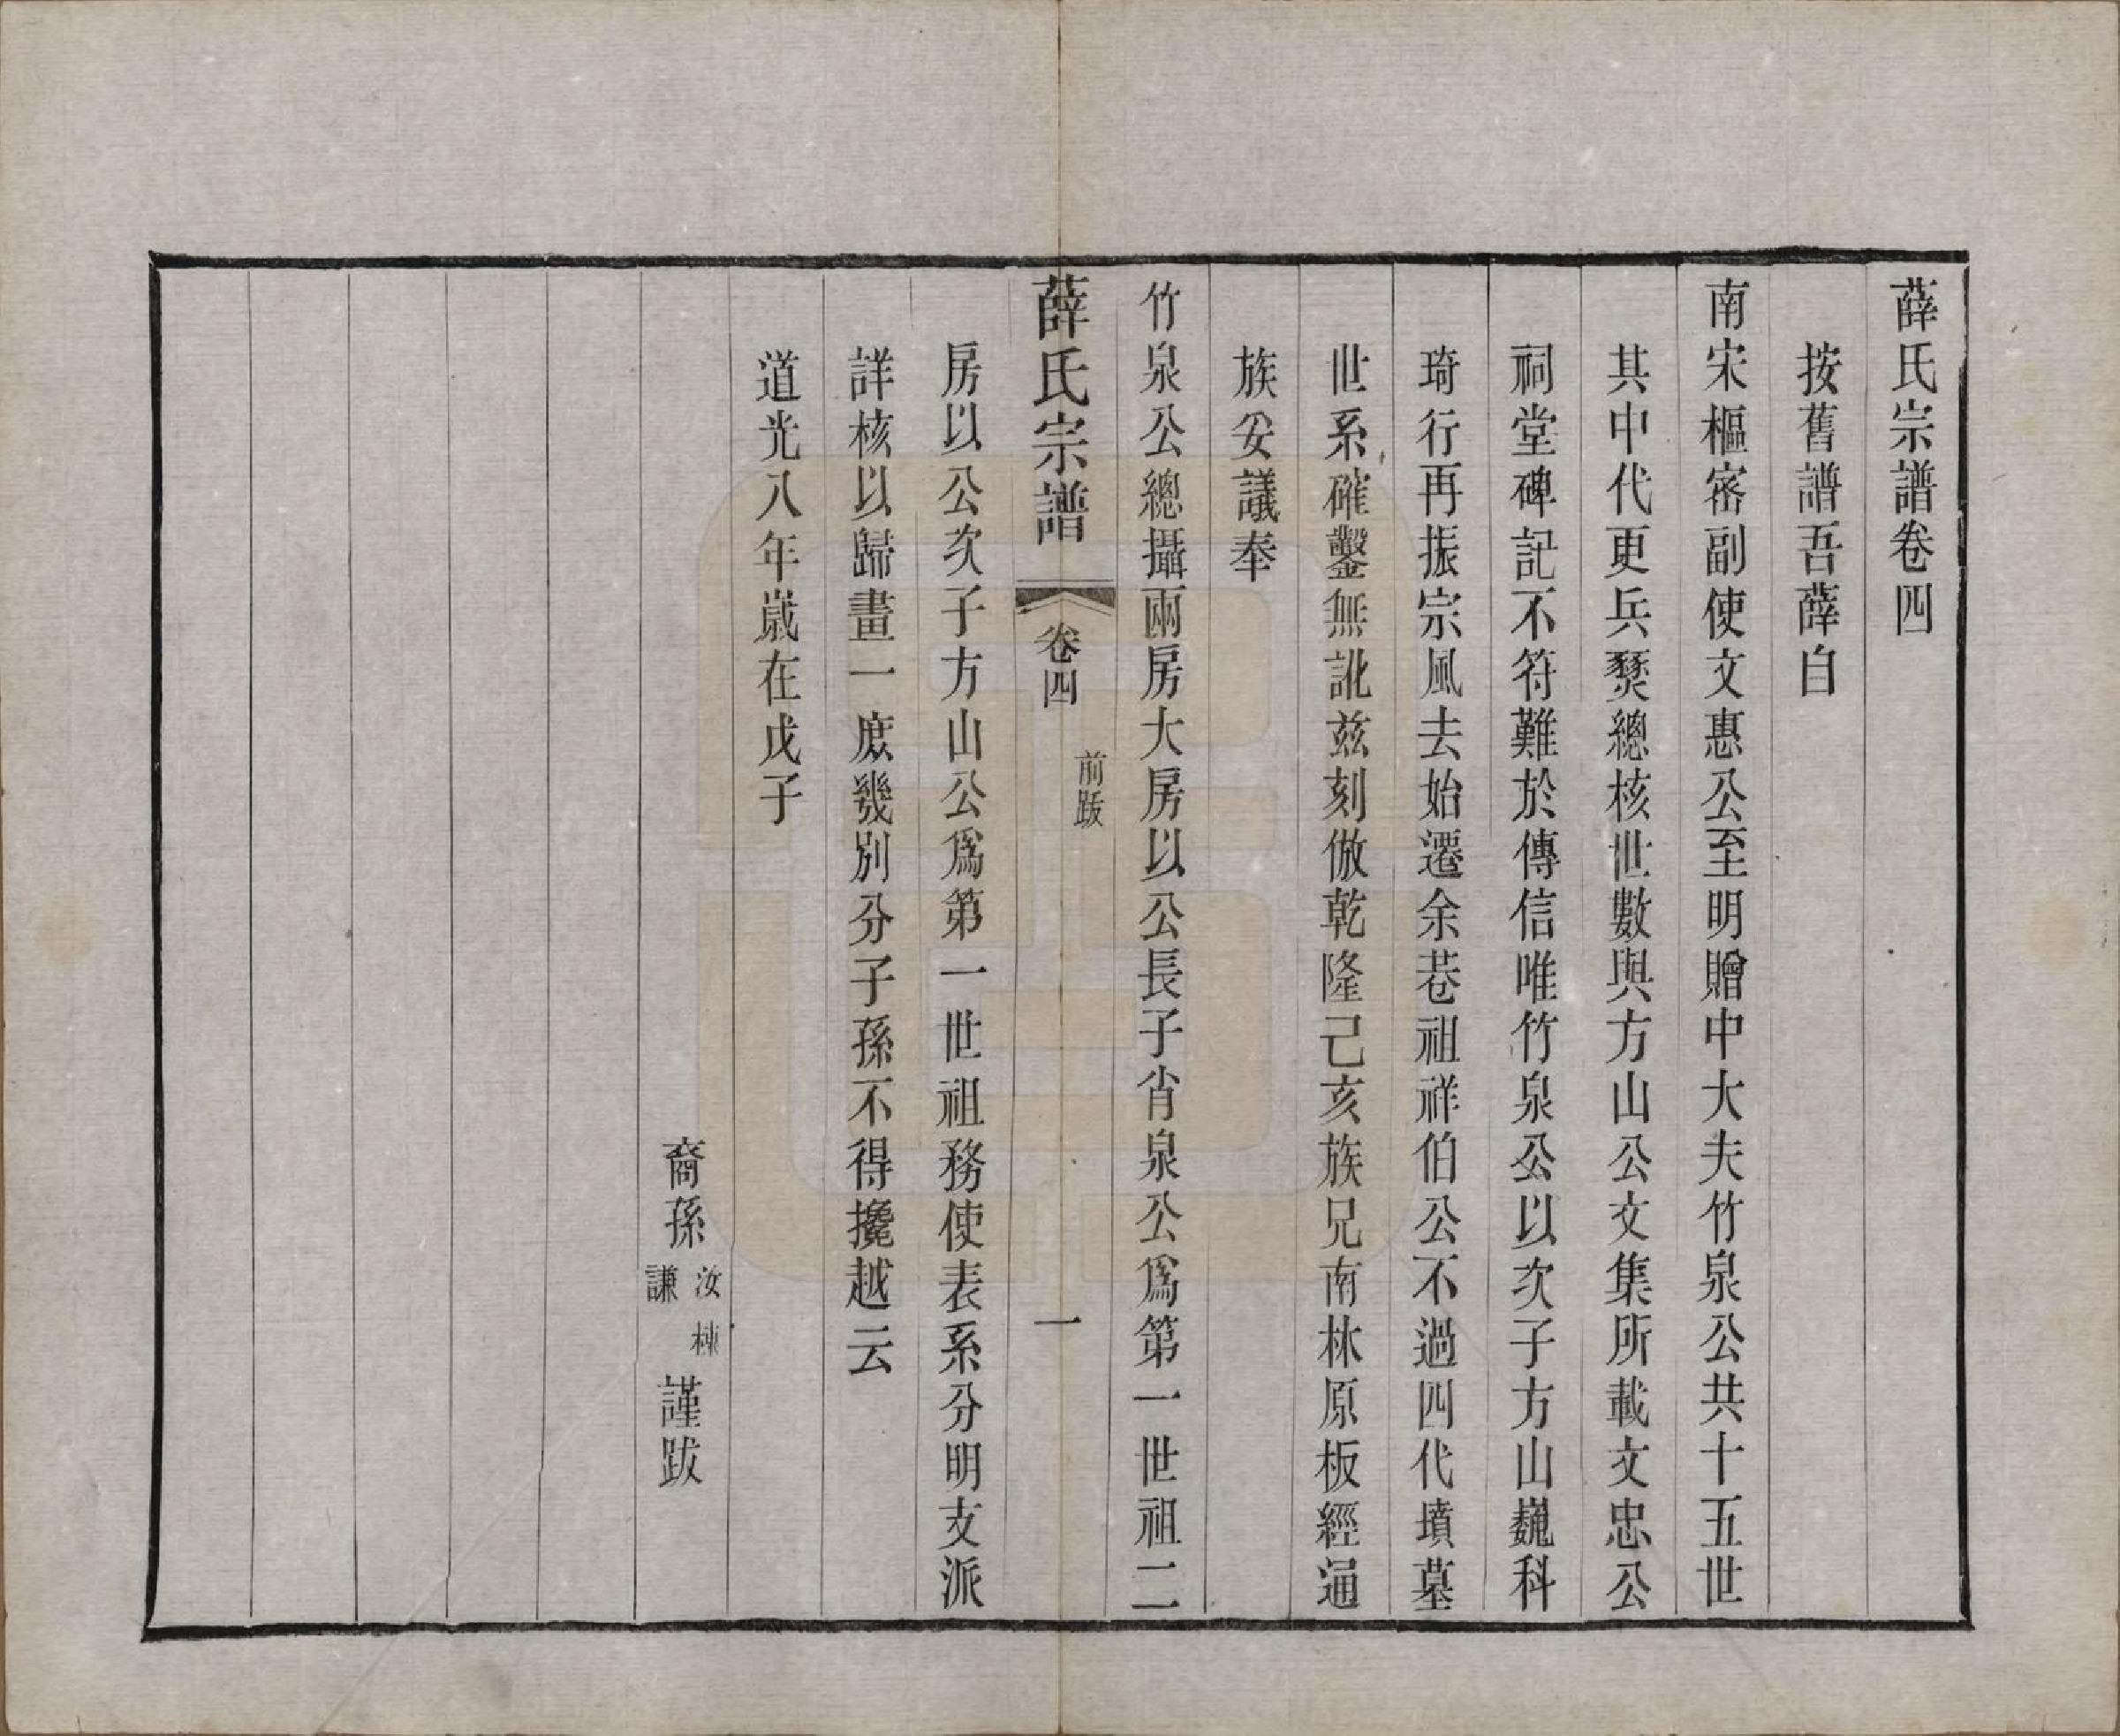 薛氏宗譜卷四
按舊譜吾薛自
南宋樞密副使文惠公至明贈中大夫竹泉公共十五世
其中代更兵燹總核世數與方山公文集所載文忠公
祠堂碑記不符難於傳信唯竹泉公以次子方山巍科
琦行再振宗風去始遷余巷祖祥伯公不過四代墳墓
世系確鑿無訛茲刻倣乾隆己亥族兄南林原板經通
族公議奉
竹泉公總攝兩房大房以公長子肖泉公爲第一世祖二
薛氏宗譜
卷四
前跋
一
房以公次子方山公爲第一世祖務使表系分明支派
詳核以歸畫一庶幾別分子孫不得攙越云
道光八年歲在戊子
裔孫汝棟謙謹跋